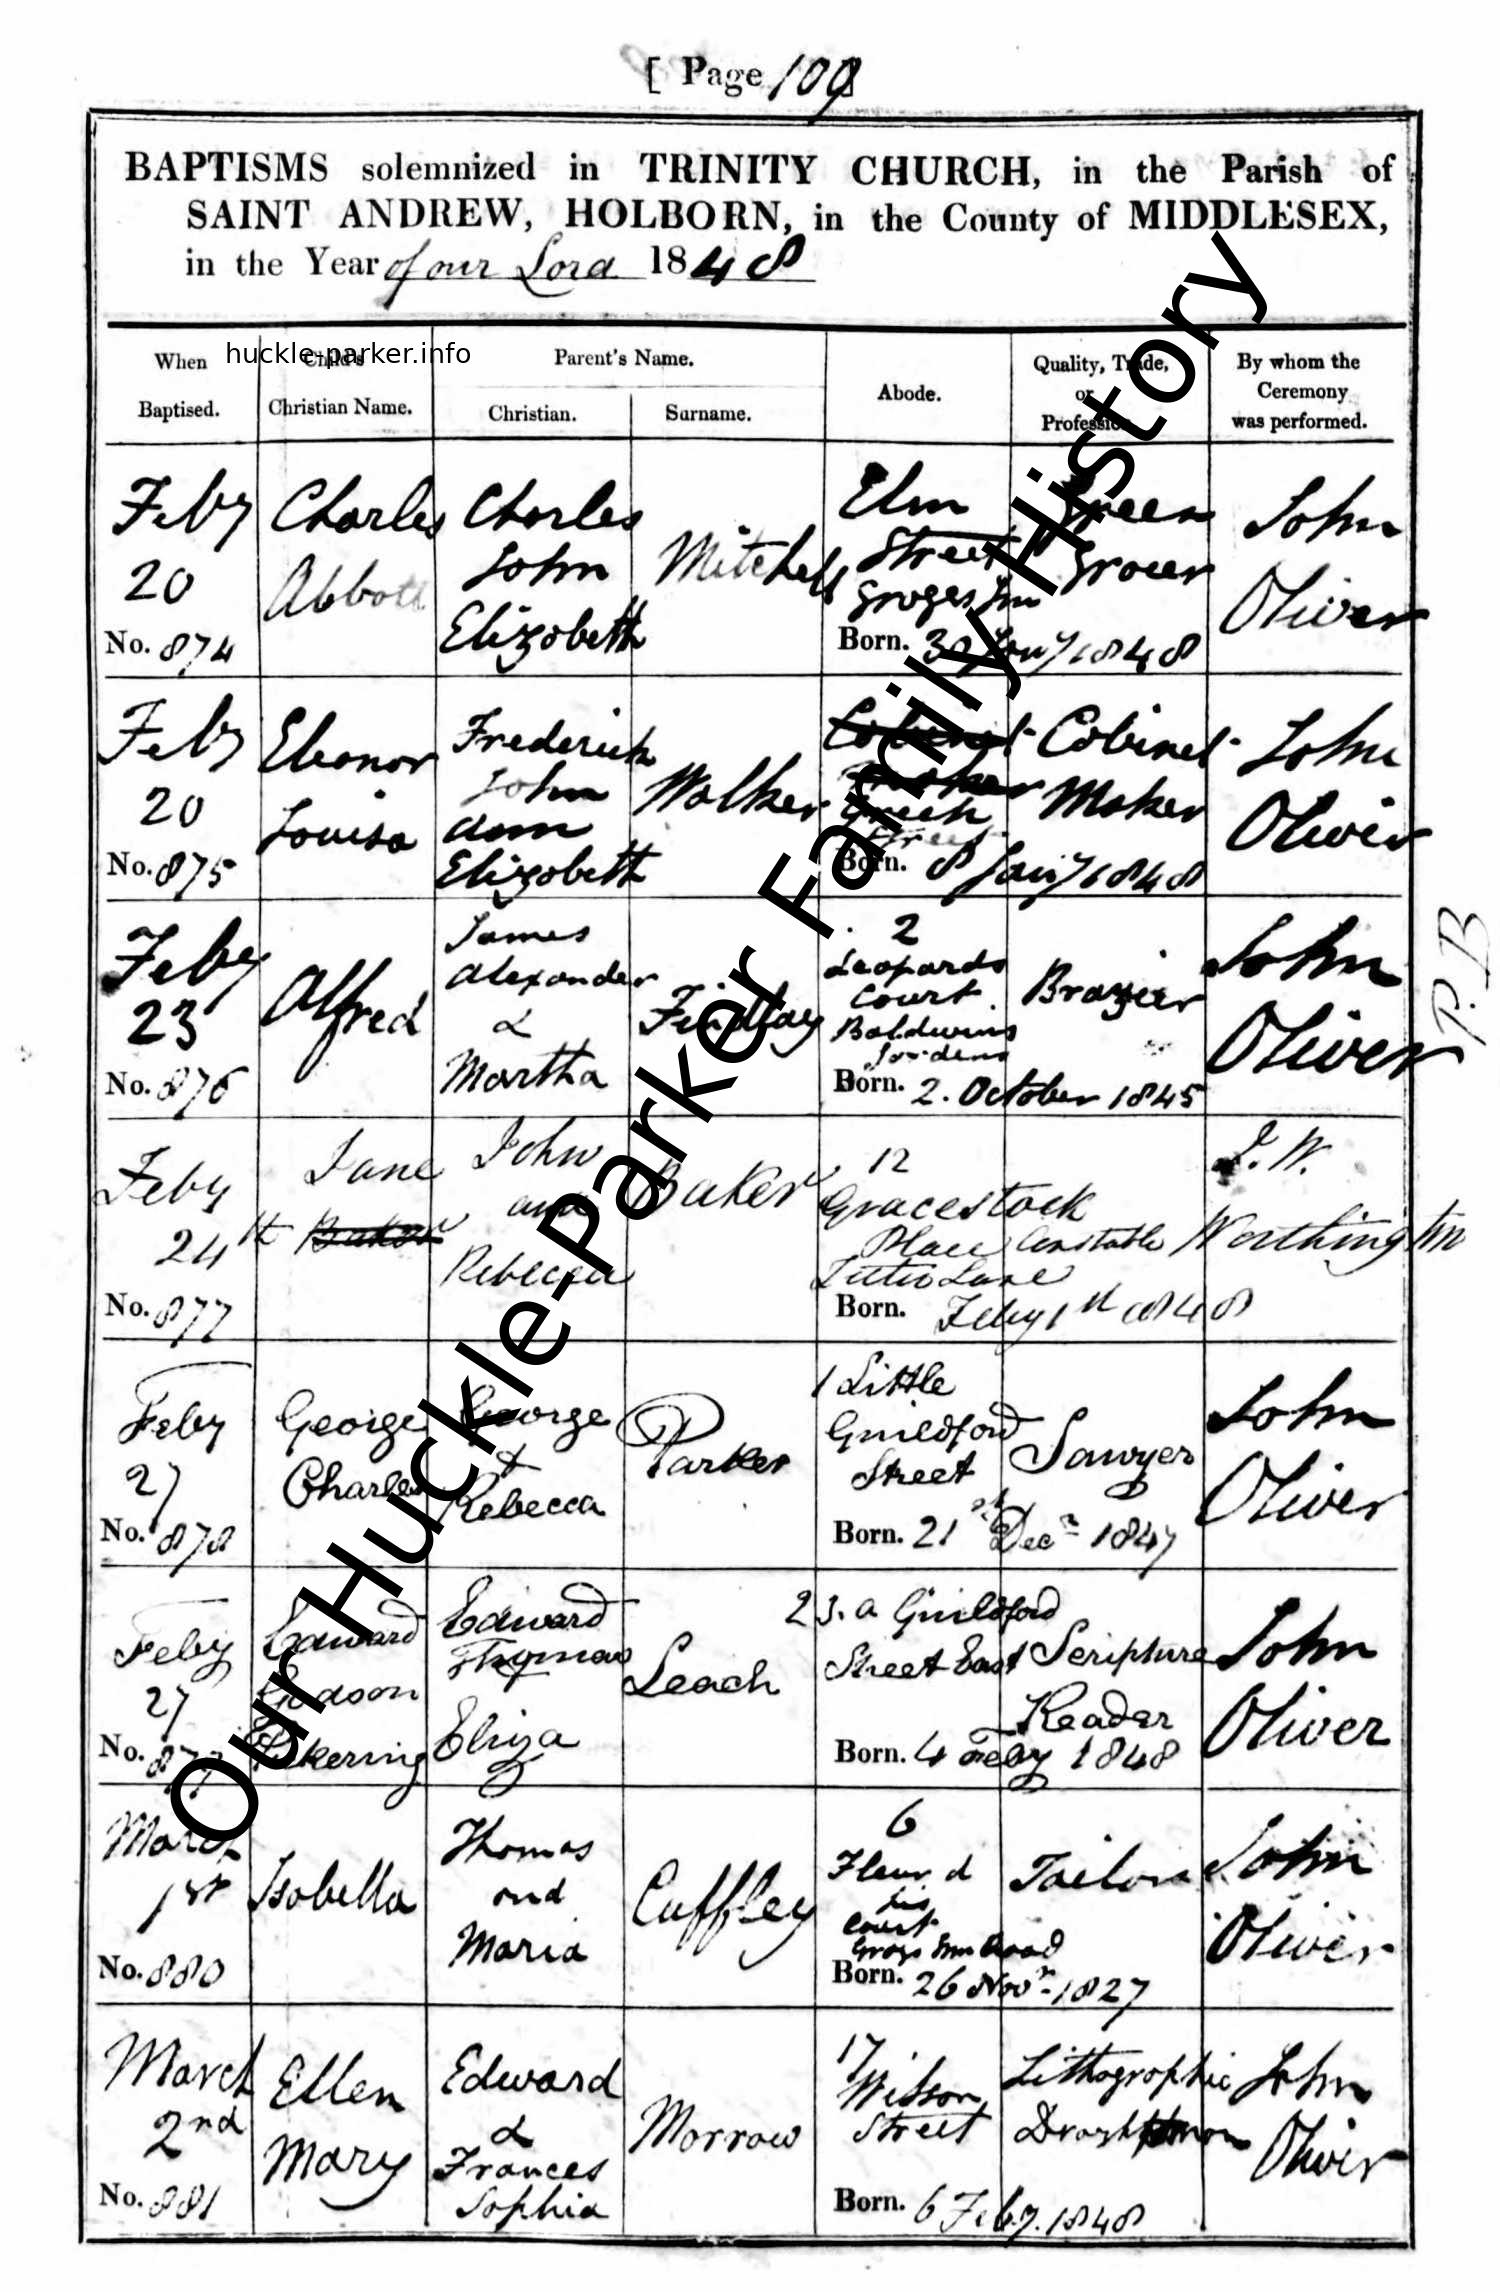 [ Page 109 ]
BAPTISMS solemnized in TRINITY CHURCH, in the Parish of
SAINT ANDREW, HOLBORN, in the County of MIDDLESEX,
in the Year of our Lord 1848
When
Baptised.
Child's
Christian Name.
Parent's Name.
Christian.
Surname.
Abode.
Quality, Trade,
or
Profession.
By whom the
Ceremony
was performed.
huckle-parker.info
Feby
20
No. 874
Charles
Abbott
Charles
John
Elizabeth
Mitchell
Elm
Street
Grays Inn
Green
Grocer
Born. 30 Jany 1848
John
Oliver
Feby
20
No. 875
Eleanor
Louisa
Frederick
John
Ann
Elizabeth
Walker
Cabinet
Maker
Street
Cabinet
Maker
Born. 8 Jany 1848
John
Oliver
Feby
23
No. 876
Alfred
James
Alexander
&
Martha
Findlay
2
Leopards
Court
Baldwins
Gardens
Brazier
Born. 2. October 1845
John
Oliver
P.B
Feby
24th
No. 877
Jane
Baker
John
and
Rebecca
Baker
12
Gracestock
Place
Lane
Constable
Born. Feby 1st 1848
J. W.
Worthington
Feby
27
No. 878
George
Charles
George
&
Rebecca
Parker
1 Little
Guildford
Street
Sawyer
Born. 21st Decr 1847
John
Oliver
Feby
27
No. 879
Edward
Godson
Pickering
Edward
Thomas
Eliza
Leach
23. a Guildford
Street East
Scripture
Reader
Born. 4 Feby 1848
John
Oliver
March
1st
No. 880
Isabella
Thomas
and
Maria
Cuffley
6
Fleur d
lis
Court
Grays Inn Road
Tailor
Born. 26 Novr 1827
John
Oliver
March
2nd
No. 881
Ellen
Mary
Edward
&
Frances
Sophia
Morrow
17
Wilson
Street
Lithographic
Born. 6 Feby. 1848
John
Oliver
Our Huckle-Parker Family History